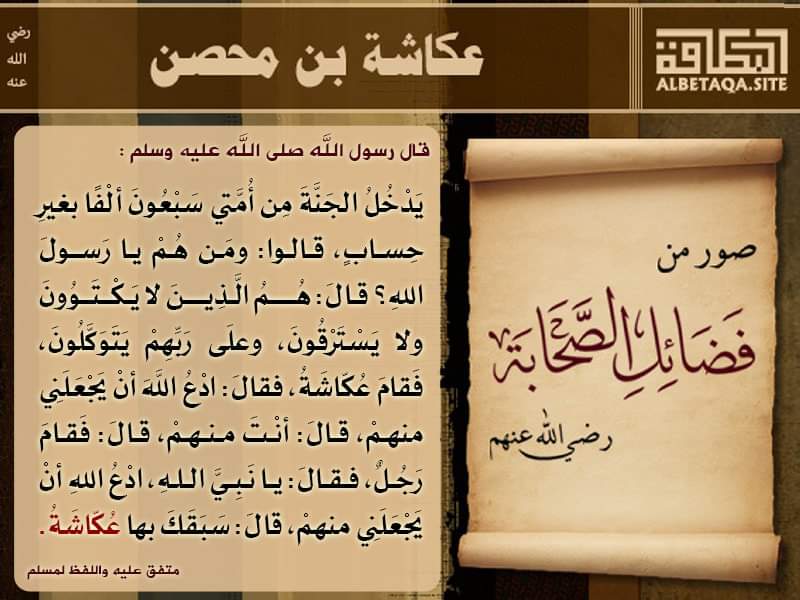 البطاقة
ALBETAQA.SITE
عكاشة بن محصن
رضي
الله
عنه
صور من
فَضَائِلِ الصَّحَابَةَ
رضي الله عنهم
قال رسول اللَّه صلى اللَّه عليه وسلم :
يَدْخُلُ الجَنَّةَ مِن أُمَّتي سَبْعُونَ ألْفًا بغيرِ
حِسابٍ، قالوا: ومَن هُمْ يا رَسولَ
اللهِ؟ قالَ: هُمُ الَّذِينَ لا يَكْتَوُونَ
ولا يَسْتَرْقُونَ، وعلَى رَبِّهِمْ يَتَوَكَّلُونَ،
فَقامَ عُكّاشَةُ، فقالَ: ادْعُ اللَّهَ أنْ يَجْعَلَنِي
منهمْ، قالَ: أنْتَ منهمْ، قالَ: فَقامَ
رَجُلٌ، فقالَ: يا نَبِيَّ اللهِ، ادْعُ اللهِ أنْ
يَجْعَلَنِي منهمْ، قالَ: سَبَقَكَ بها عُكّاشَةُ.
متفق عليه واللفظ لمسلم